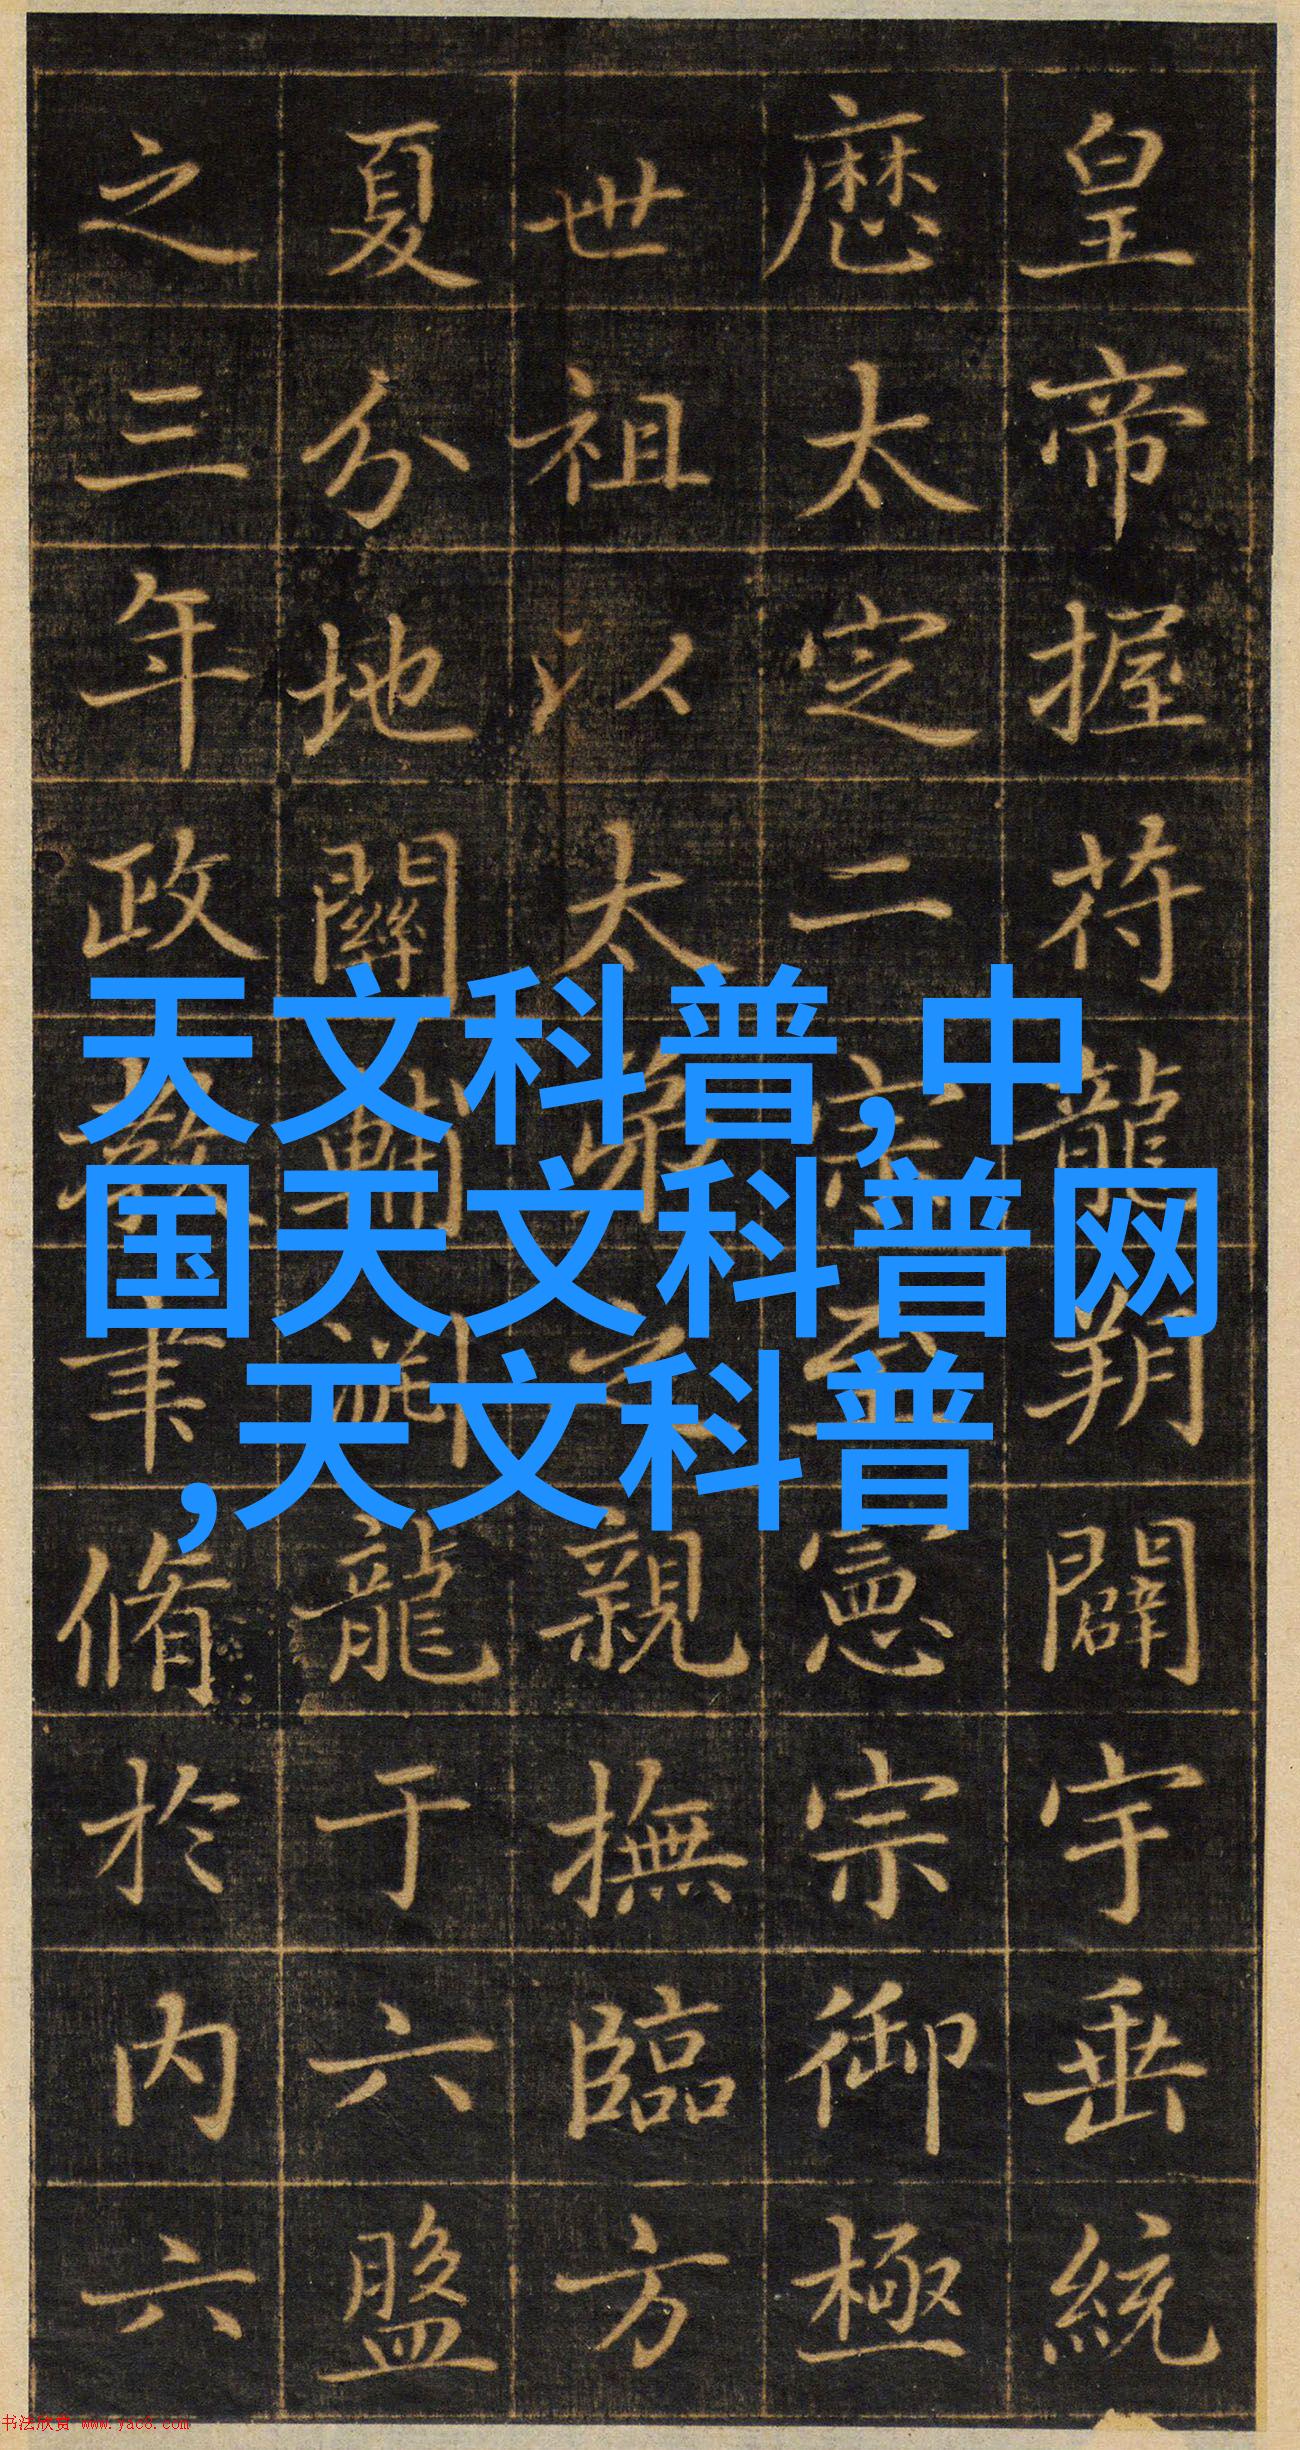 皇帝握苻龍朔闢宇垂統
厯太定二宗至憲宗御極
世祖以太弟之親撫臨方
夏分地關輔淵龍于六盤
之三年政教聿脩於内六
天文科普,中
国天文科普网
,天文科普
书法欣赏 www.yac8.com